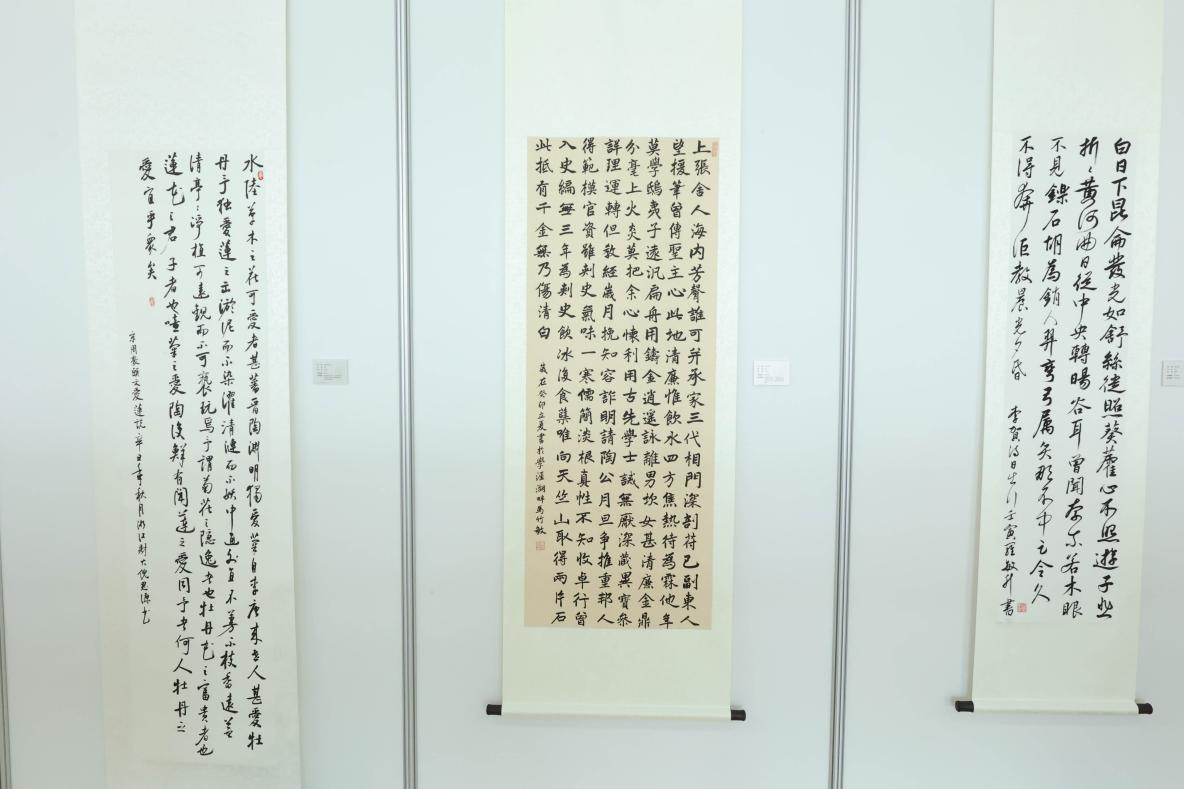 白日下昆侖發光如舒絲徒照葵藿心不照遊子悲
折〻黃河曲日從中央轉暘谷耳曾聞奈尔若木眼
不見鑠石胡為銷人羿彎弓属矢那不中足令久
不得奔詎教晨光夕昏
李賀詩日出行壬寅羅敏升書
上張舍人海內芳聲誰可并承家三代相門深剖苻已副東人
望援筆曾傳聖主心此地清廉惟飲水四方焦熱待為霖他年
莫學鴟夷子遠汎扁舟用鑄金逍遥詠離男坎女甚清廉金鼎
分毫上火炎莫把余心懷利用古先學士誡無厭深藏異寶參
詳理運轉但敎經歲月挽知容詐明請陶公月旦争推重邦人
得範模官資雖剌史氣味一寒儒簡淡根真性不知收卓行曾
入史編無三年為剌史飲冰復食蘗唯向天竺山取得兩片石
此抵有千金無乃傷清白
歲在癸卯立夏書於學涯湖畔馬竹敏
水陸草木之花可愛者甚蕃晋陶淵明獨愛菊自李唐来世人甚愛牡
丹予独愛蓮之出淤泥而不染濯清漣而不妖中通外直不蔓不枝香遠益
清亭〻淨植可遠觀而不可褻玩焉予謂菊花之隱逸者也牡丹花之富貴者也
蓮花之君子者也噫菊之愛陶後鮮有聞蓮之愛同予者何人牡丹之
愛宜乎衆矣
宋周敦頤文愛蓮說辛丑年秋月浙江財大倪思源書